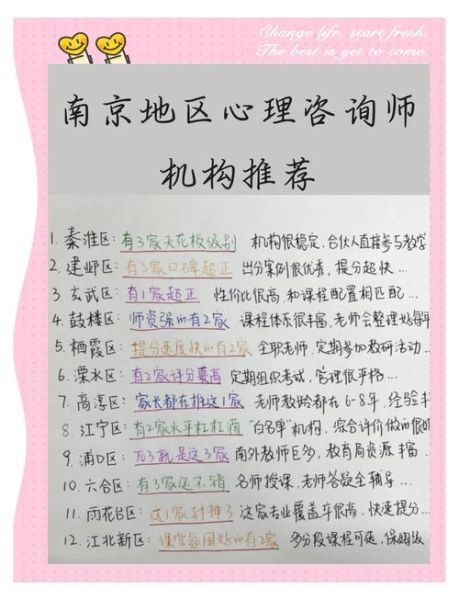 Change life, start fresh.
The best is yet to come.
南京地区心理咨询师
机构推荐
1. 秦淮区：有3家天花板级别 机构很稳定，合伙人直接参与教学
2. 建邺区：有3家口碑超正 出分案例很优秀，提分超快...
3. 玄武区：有1家超正 性价比很高，和课程配置相匹配...
4. 鼓楼区：师资强的有2家 课程体系很丰富，老师会整理
5. 栖霞区：提分速度快的有2家 全职老师，定期参加教研活动...
6. 溧水区：有2家评分蛮高 定期组织考试，管理很严格...
7. 高淳区：家长都在推这1家 老师教龄都在6-8年，经验丰
8. 江宁区：有2家水平杠杠滴 "白名单"机构，综合评价做的很好
9. 浦口区：就是这3家 南外教师巨多，教育局资源丰富...
10. 六合区：有3家还不错 名师授课，老师答疑全辅导...
11. 雨花台区：这1家封神了 这家专业覆盖率很高，快速提分...
12. 江北新区：课堂氛围好的有2家 多分段课程可选，保姆级